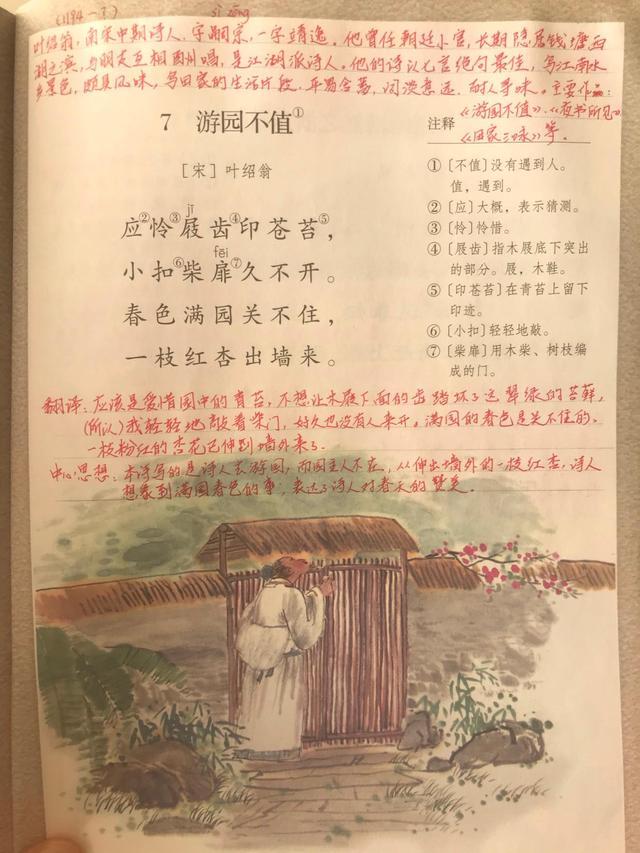 (1194-?)
sì zōng
叶绍翁，南宋中期诗人，字嗣宗，一字靖逸。他曾任朝廷小官，长期隐居钱塘西
湖之滨，与朋友互相酬唱，是江湖派诗人。他的诗以七言绝句最佳，写江南水
乡景色，颇具风味，写田家的生活片段，平易含蓄，闲淡意远，耐人寻味。主要作品：
《游园不值》、《夜书所见》
《田家三咏》等。
7 游园不值①
[宋] 叶绍翁
jī
应②怜③屐齿④印苍苔⑤，
fēi
小扣⑥柴扉⑦久不开。
春色满园关不住，
一枝红杏出墙来。
注释
①〔不值〕没有遇到人。
值，遇到。
②〔应〕大概，表示猜测。
③〔怜〕怜惜。
④〔屐齿〕指木屐底下突出
的部分。屐，木鞋。
⑤〔印苍苔〕在青苔上留下
印迹。
⑥〔小扣〕轻轻地敲。
⑦〔柴扉〕用木柴、树枝编
成的门。
翻译：应该是爱惜园中的青苔，不想让木屐下面的齿踏坏了这翠绿的苔藓，
(所以)我轻轻地敲着柴门，好久也没有人来开。满园的春色是关不住的，
一枝粉红的杏花已伸到墙外来了。
中心思想：本诗写的是诗人去游园，而园主人不在，从伸出墙外的一枝红杏，诗人
想象到满园春色的事，表达了诗人对春天的赞美。